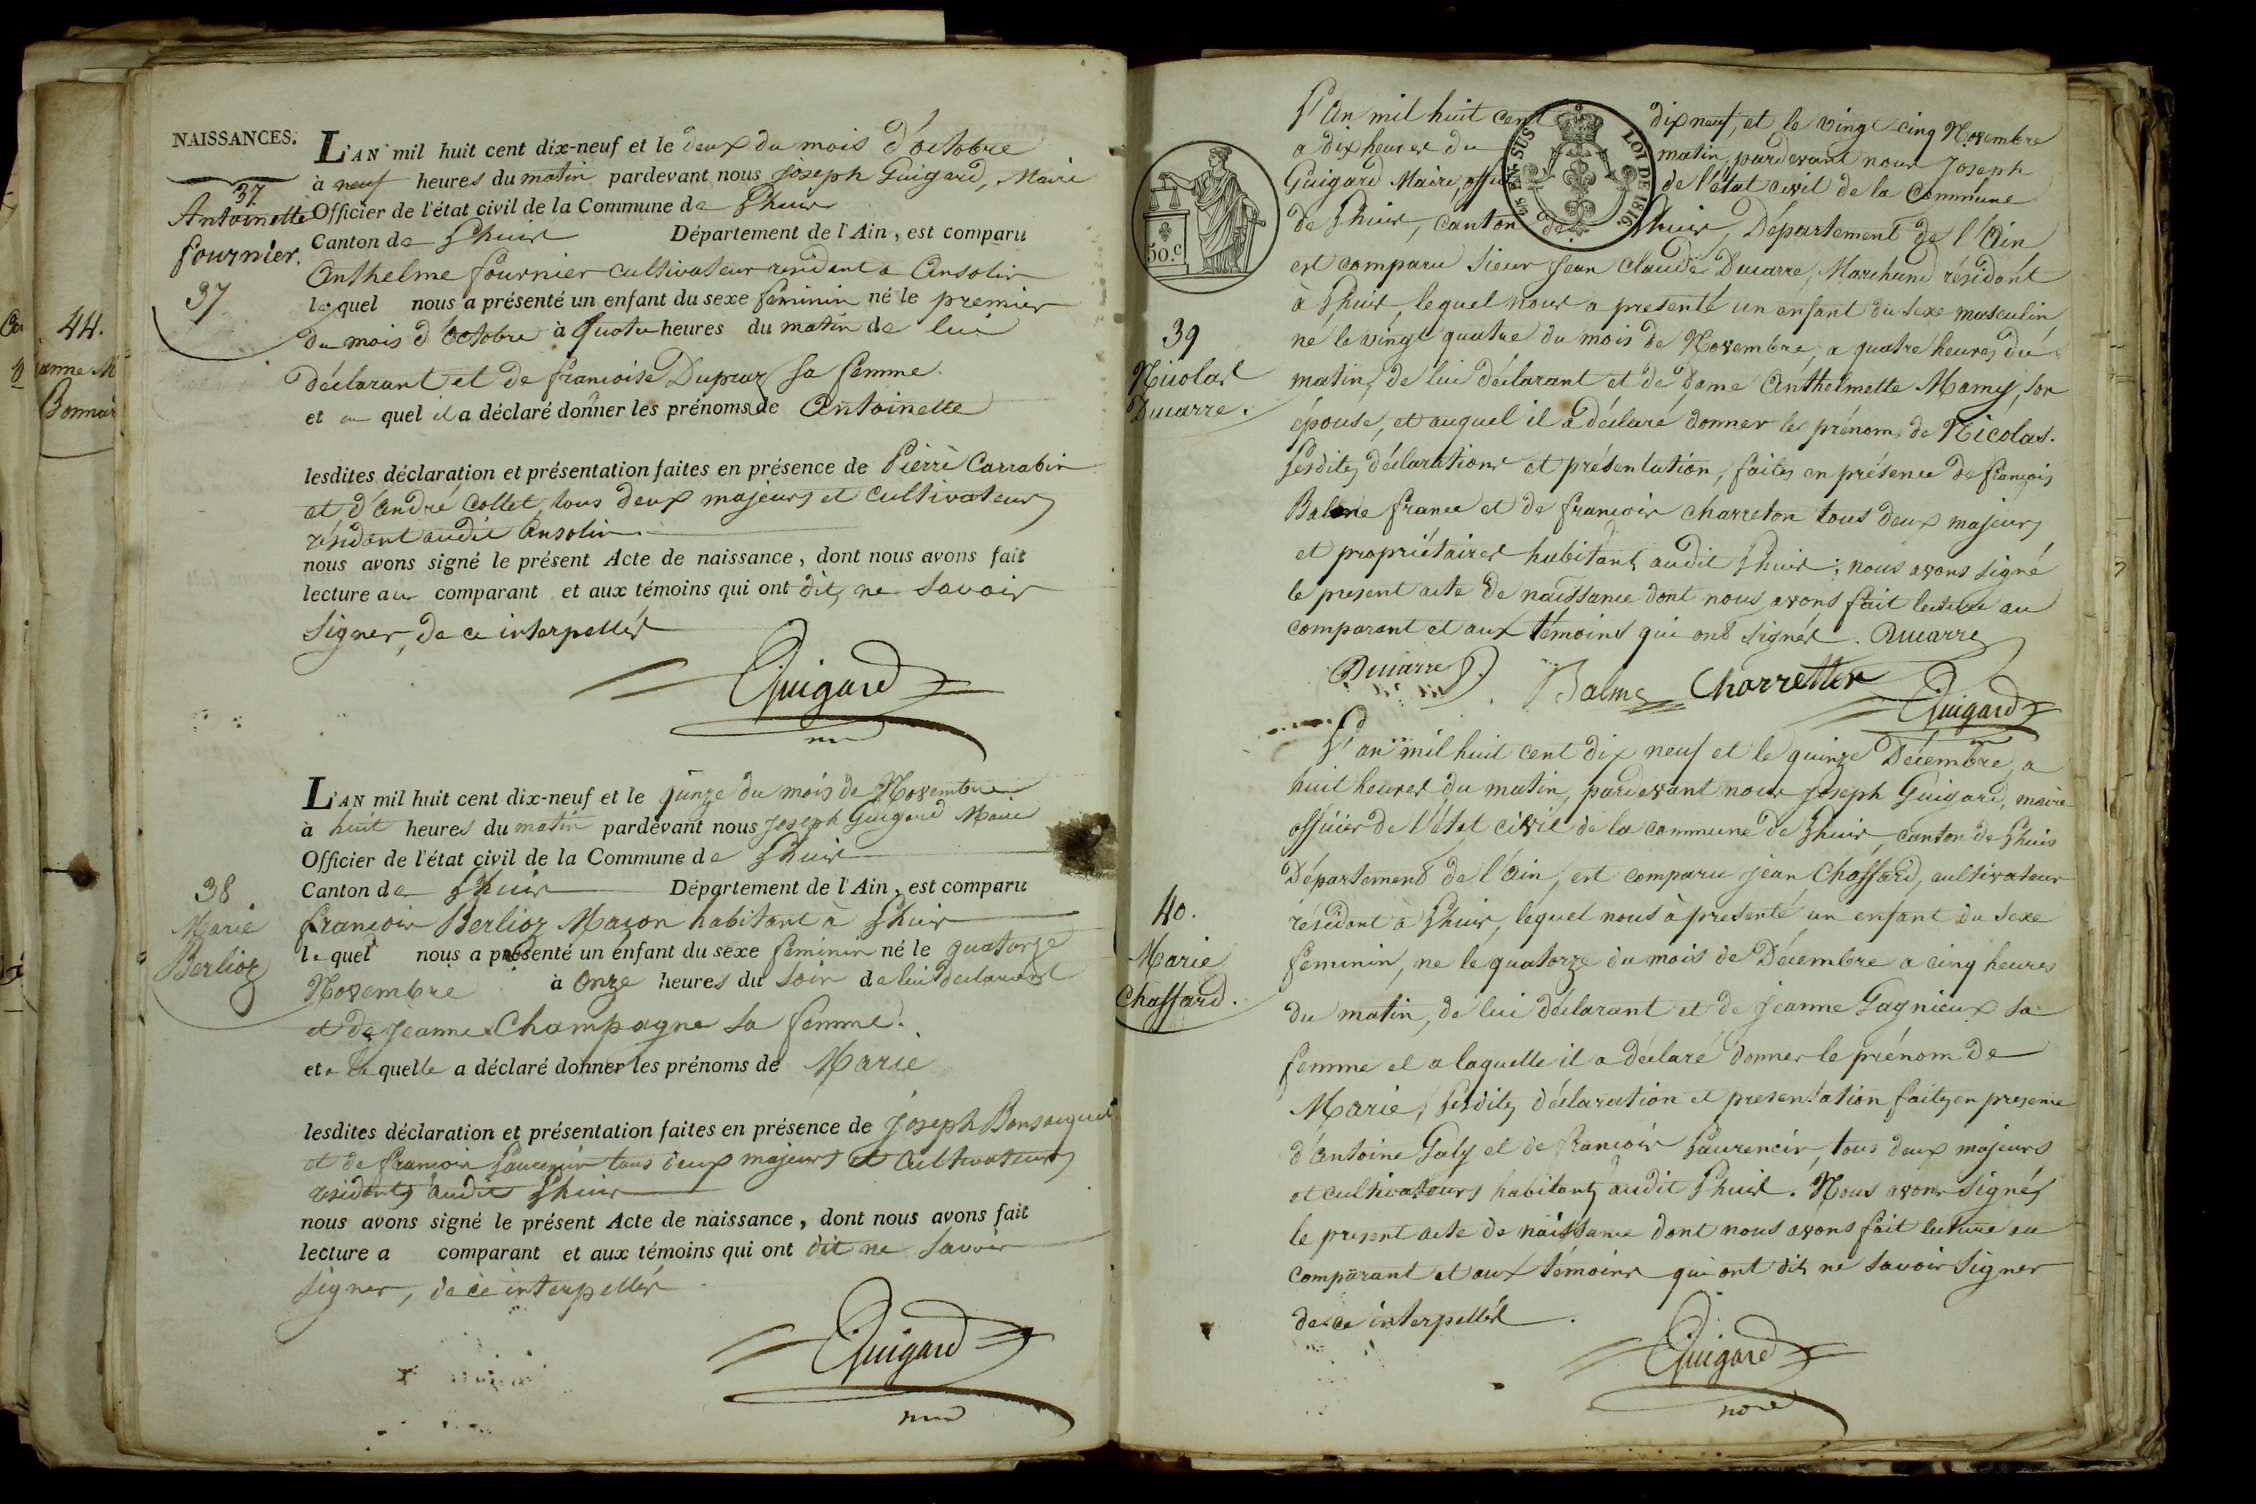 44.
Jeanne M
Bonnar
NAISSANCES.
37.
Antoinette
fournier.
37
L'AN mil huit cent dix-neuf et le deux du mois d'octobre
à neuf heures du matin pardevant nous Joseph Guigard, Maire
Officier de l'état civil de la Commune de Lhuis
Canton de Lhuis Département de l'Ain, est comparu
Anthelme fournier cultivateur residant a Ansolin
lequel nous a présenté un enfant du sexe feminin né le premier
du mois d'octobre à quatre heures du matin de lui
déclarant et de francoise Dupraz sa femme.
et au quel il a déclaré donner les prénoms de Antoinette
lesdites déclaration et présentation faites en présence de Pierre Carrabin
et d'andré Collet, tous deux majeurs et cultivateurs
résidant audit Ansolin.
nous avons signé le présent Acte de naissance, dont nous avons fait
lecture au comparant et aux témoins qui ont dits ne Savoir
Signer, de ce interpellés
Guigard
38
Marie
Berlioz
L'AN mil huit cent dix-neuf et le quinze du mois de Novembre
à huit heures du matin pardevant nous Joseph Guigard Maire
Officier de l'état civil de la Commune de Lhuis
Canton de Lhuis Département de l'Ain, est comparu
francois Berlioz Maçon habitant à Lhuis
lequel nous a présenté un enfant du sexe feminin né le quatorze
Novembre à Onze heures du soir de lui déclarant
et de Jeanne Champagne sa femme.
et a la quelle a déclaré donner les prénoms de Marie
lesdites déclaration et présentation faites en présence de Joseph
et de francois Laurencin tous deux majeurs et Cultivateurs
residants audit Lhuis
nous avons signé le présent Acte de naissance, dont nous avons fait
lecture a comparant et aux témoins qui ont dit ne Savoir
signer, de ce interpellés
Guigard
50. C
EN SUS
LOI DE 1816
39
Nicolas
Ducarre.
L'An mil huit cent dix neuf, et le vingt cinq Novembre
a dix heures du matin, pardevant nous Joseph
Guigard Maire, offi de l'état civil de la Commune
de Lhuis, canton de Lhuis, Département de l'Ain
est comparu Sieur Jean Claude Ducarre, Marchand résidant
à Lhuis, lequel nous a presenté un enfant du sexe masculin
né le vingt quatre du mois de Novembre, a quatre heures du
matin, de lui déclarant et de Dame Anthelmette Mamy, son
épouse, et auquel il a déclaré donner les prénoms de Nicolas.
Lesdites déclarations et présentation, faites en présence de françois
Balme france et de francois Charreton tous deux majeurs
et propriétaires habitants audit Lhuis; nous avons signé
le present acte de naissance dont nous avons fait lecture au
comparant et aux témoins qui ont signés. Ducarre
Ducarre
Balme Charretton
Guigard
40.
Marie
Chaffard.
L'an mil huit cent dix neuf et le quinze Décembre, a
huit heures du matin, pardevant nous Joseph Guigard, maire
officier de l'état civil de la commune de Lhuis, canton de Lhuis
Département de l'Ain, est comparu Jean Chaffard, cultivateur
résidant à Lhuis, lequel nous à presenté un enfant du sexe
feminin, né le quatorze du mois de Décembre a cinq heures
du matin, de lui déclarant et de Jeanne Gagnieux sa
femme et a laquelle il a déclaré donner le prénom de
Marie, Lesdites déclaration et presentation faites en presence
d'Antoine Galy et de francois Laurencin, tous deux majeurs
et cultivateurs habitants audit Lhuis. Nous avons signés
le present acte de naissance dont nous avons fait lecture au
comparant et aux témoins qui ont dits ne savoir Signer
de ce interpellés.
Guigard